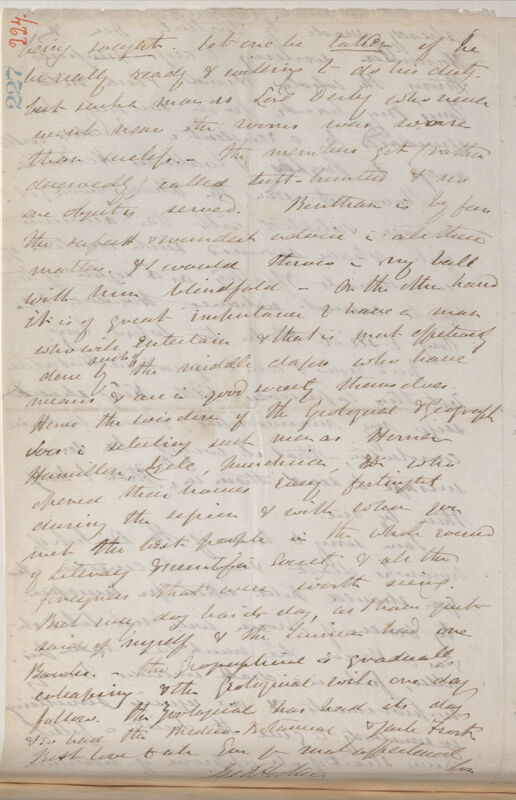 224.
227
being sought. let one be taken if he
be really ready & willing to do his duty.
but such a man as Lord Derby who never
went near the rooms was worse
than useless. – the members get (rather
deservedly) called tuft-hunters & no
one object is served. Bentham is by far
the safest & soundest advice in all these
matters. & I would throw in my ball
with him blindfold – On the other hand
it is of great importance to have a man
who will entertain & that is most effectively
done by such of the middle classes who have
means & are in good society themselves.
Hence the wisdom of the Geological & Geograph
Socs in selecting such men as Horner
Hamilton, Lyell, Murchison, & who
opened their houses every fortnight
during the session & with whom you
met the best people in the whole round
of Literary & scientific society & all the
foreigners that were worth seeing.
But every dog has its day, as I have just
said of myself & the Linnean had one
Banks. – the Geographical is gradually
collapsing & the Geological will one day
follow. the Zoological has had its day
& so had the Medico-Botanical & Jack Frost
Best love to all Ever yr most affectionate
Jos D Hooker